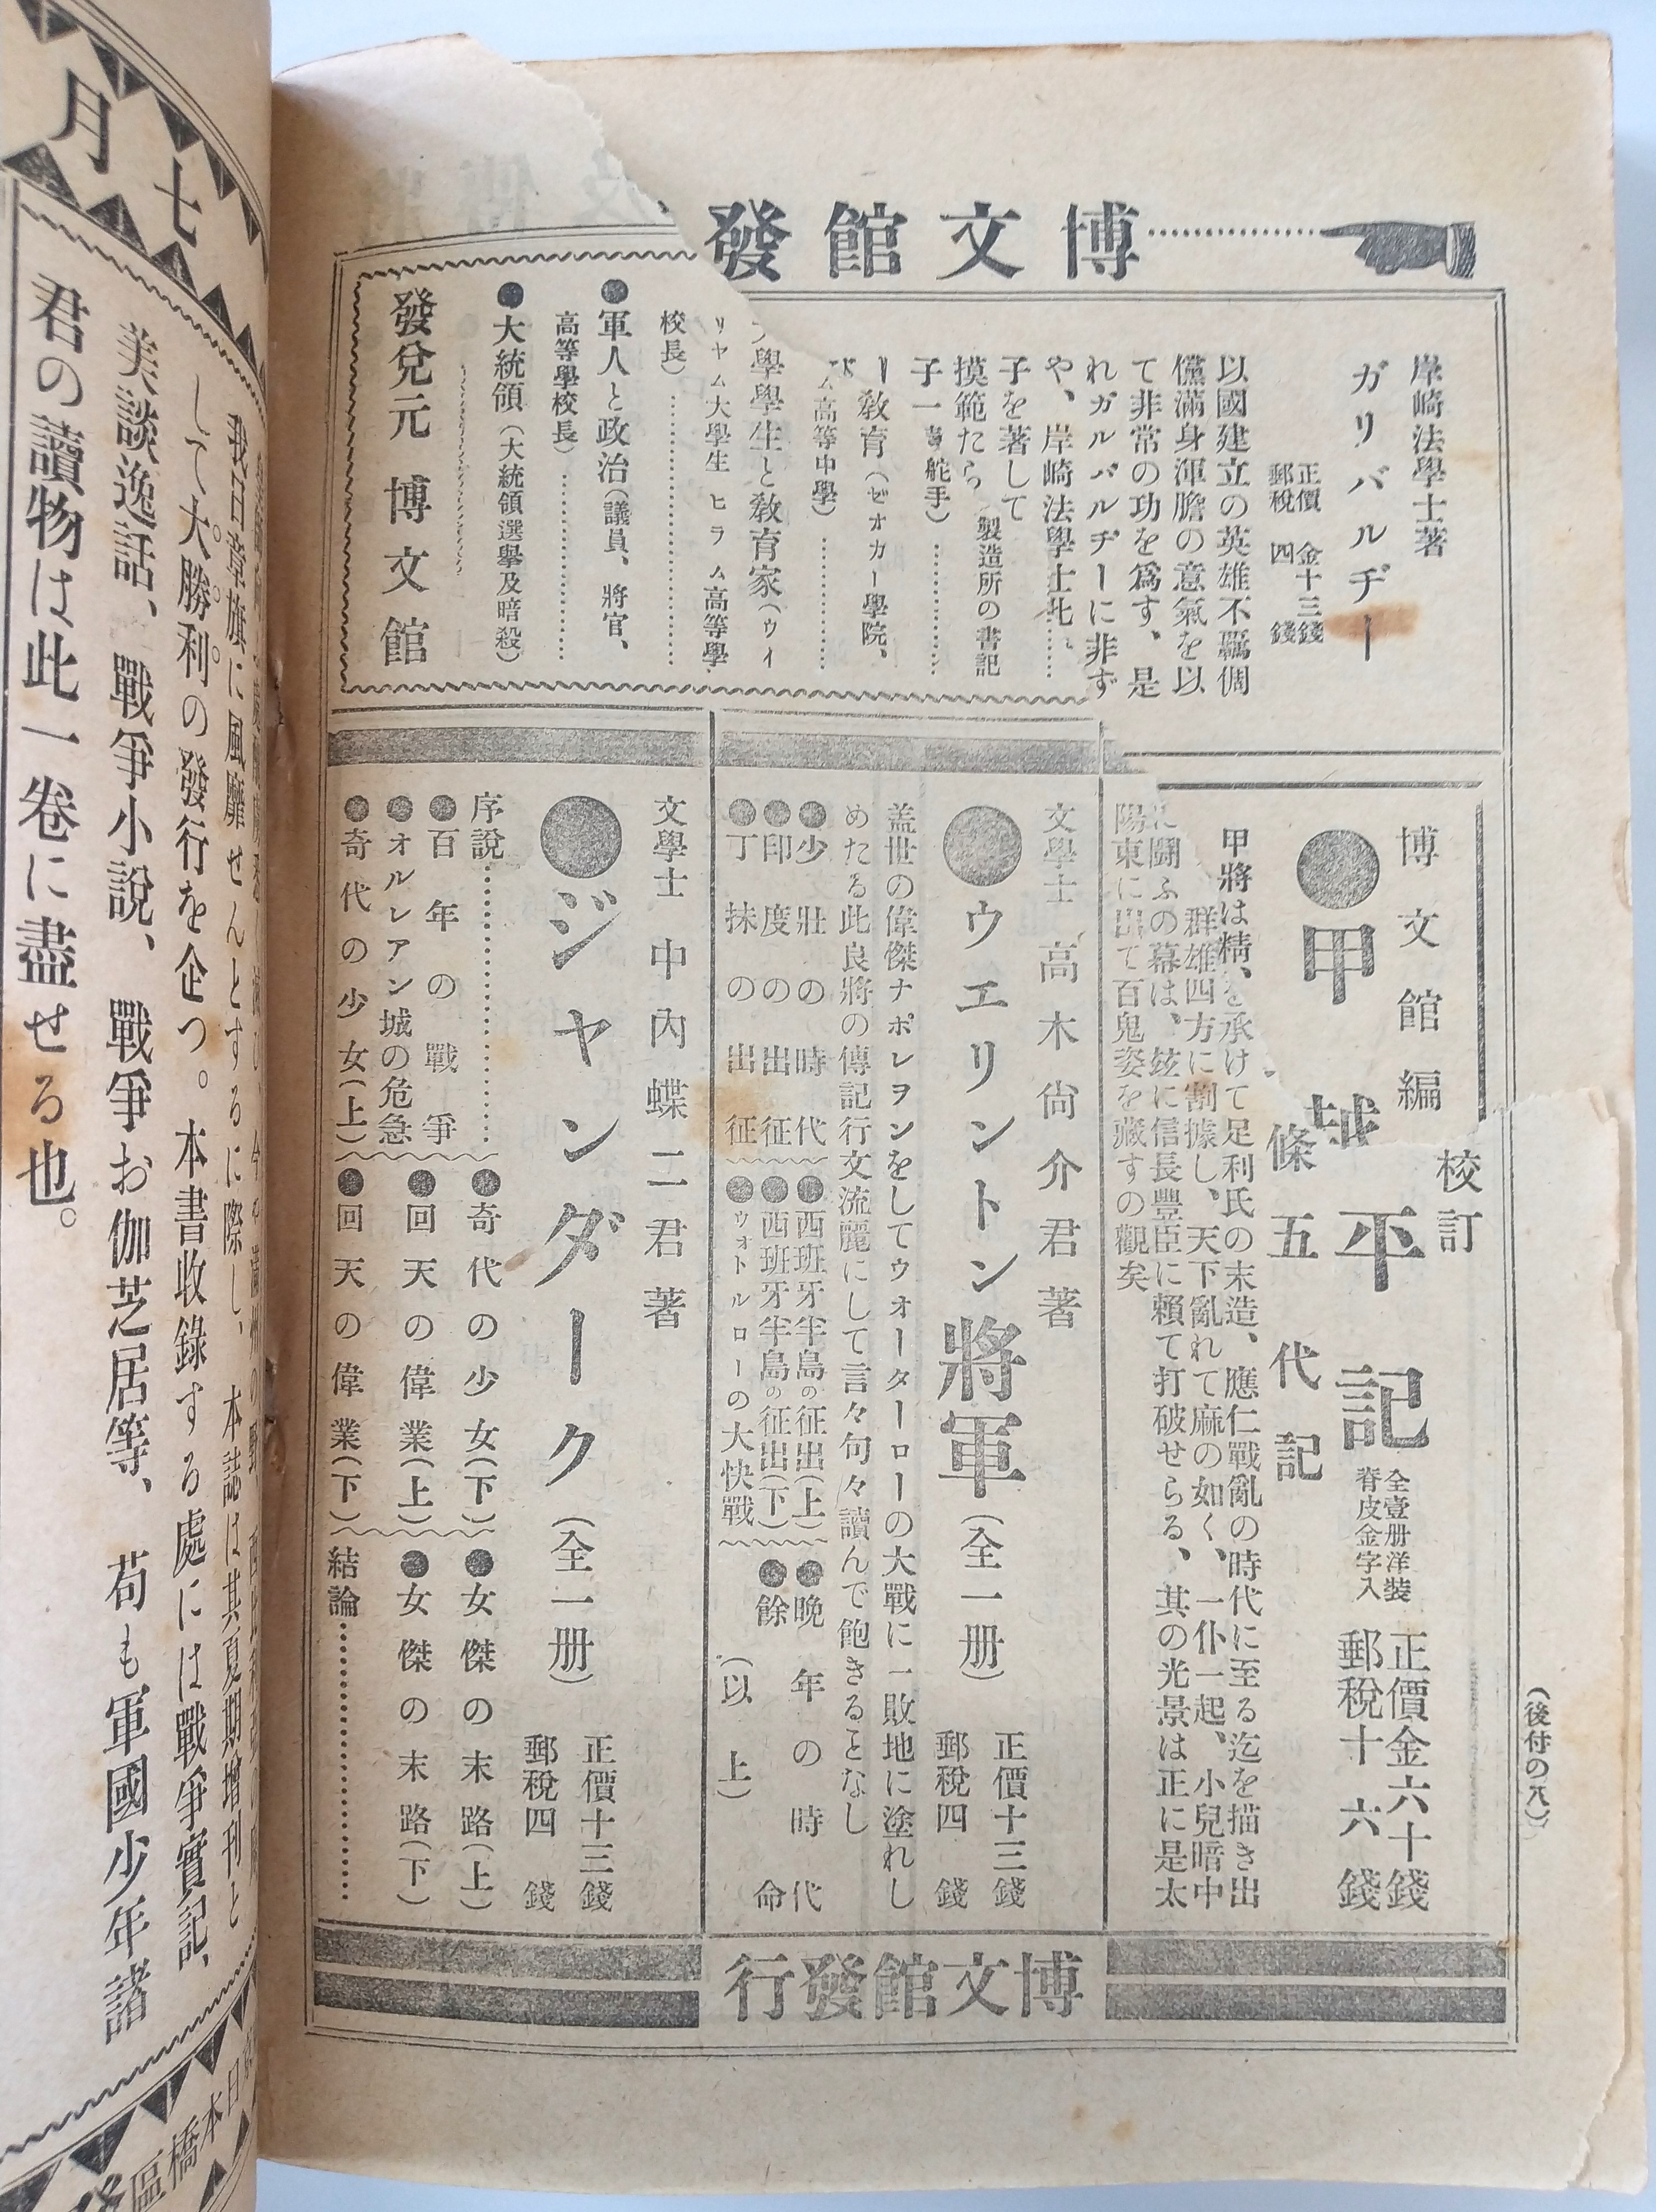 博文館發
岸崎法學士著
ガリバルヂー
正價金十三錢
郵稅四錢
以國建立の英雄不羈倜
儻滿身渾膽の意氣を以
て非常の功を爲す、是
れガルバルヂーに非ず
や、岸崎法學士此
子を著して
摸範たら
製造所の書記
子一
舵手)
ー敎育(ゼオカー學院、
高等中學)
學學生と敎育家(ウイ
リヤム大學生 ヒラム高等學
校長)
●軍人と政治(議員、將官、
高等學校長)
●大統領(大統領選擧及暗殺)
發兌元 博文館
(後付の八)
博文館編
校訂
●甲越
平記
條五代記
全壹册洋裝
脊皮金字入
正價金六十錢
郵稅十六錢
甲將は精
を承けて足利氏の末造、應仁戰亂の時代に至る迄を描き出
群雄四方に割據し、天下亂れて麻の如く、一仆一起、小兒暗中
に鬪ふの幕は、玆に信長豐臣に賴て打破せらる、其の光景は正に是太
陽東に出て百鬼姿を藏すの觀矣
文學士 高木尙介君著
●ウエリントン將軍(全一册)
正價十三錢
郵稅四錢
盖世の偉傑ナポレヲンをしてウオーターローの大戰に一敗地に塗れし
めたる此良將の傳記行文流麗にして言々句々讀んで飽きるとなし
●少壯の時代
●印度の出征
●丁抹の出征
●西班牙半島の征出(上)
●西班牙半島の征出(下)
●ウオトルローの大快戰
●晩年の時代
●餘命
(以上)
文學士 中內蝶二君著
●ジャンダーク(全一册)
正價十三錢
郵稅四錢
序說
●百年の戰爭
●オルレアン城の危急
●奇代の少女(上)
●奇代の少女(下)
●回天の偉業(上)
●回天の偉業(下)
●女傑の末路(上)
●女傑の末路(下)
結論
博文館發行
七月
我日章旗に風靡せんとするに際し、本誌は其夏期增刊と
して大勝利の發行を企つ。本書收錄する處には戰爭實記、
美談逸話、戰爭小說、戰爭お伽芝居等、苟も軍國少年諸
君の讀物は此一卷に盡せる也。
日本橋區